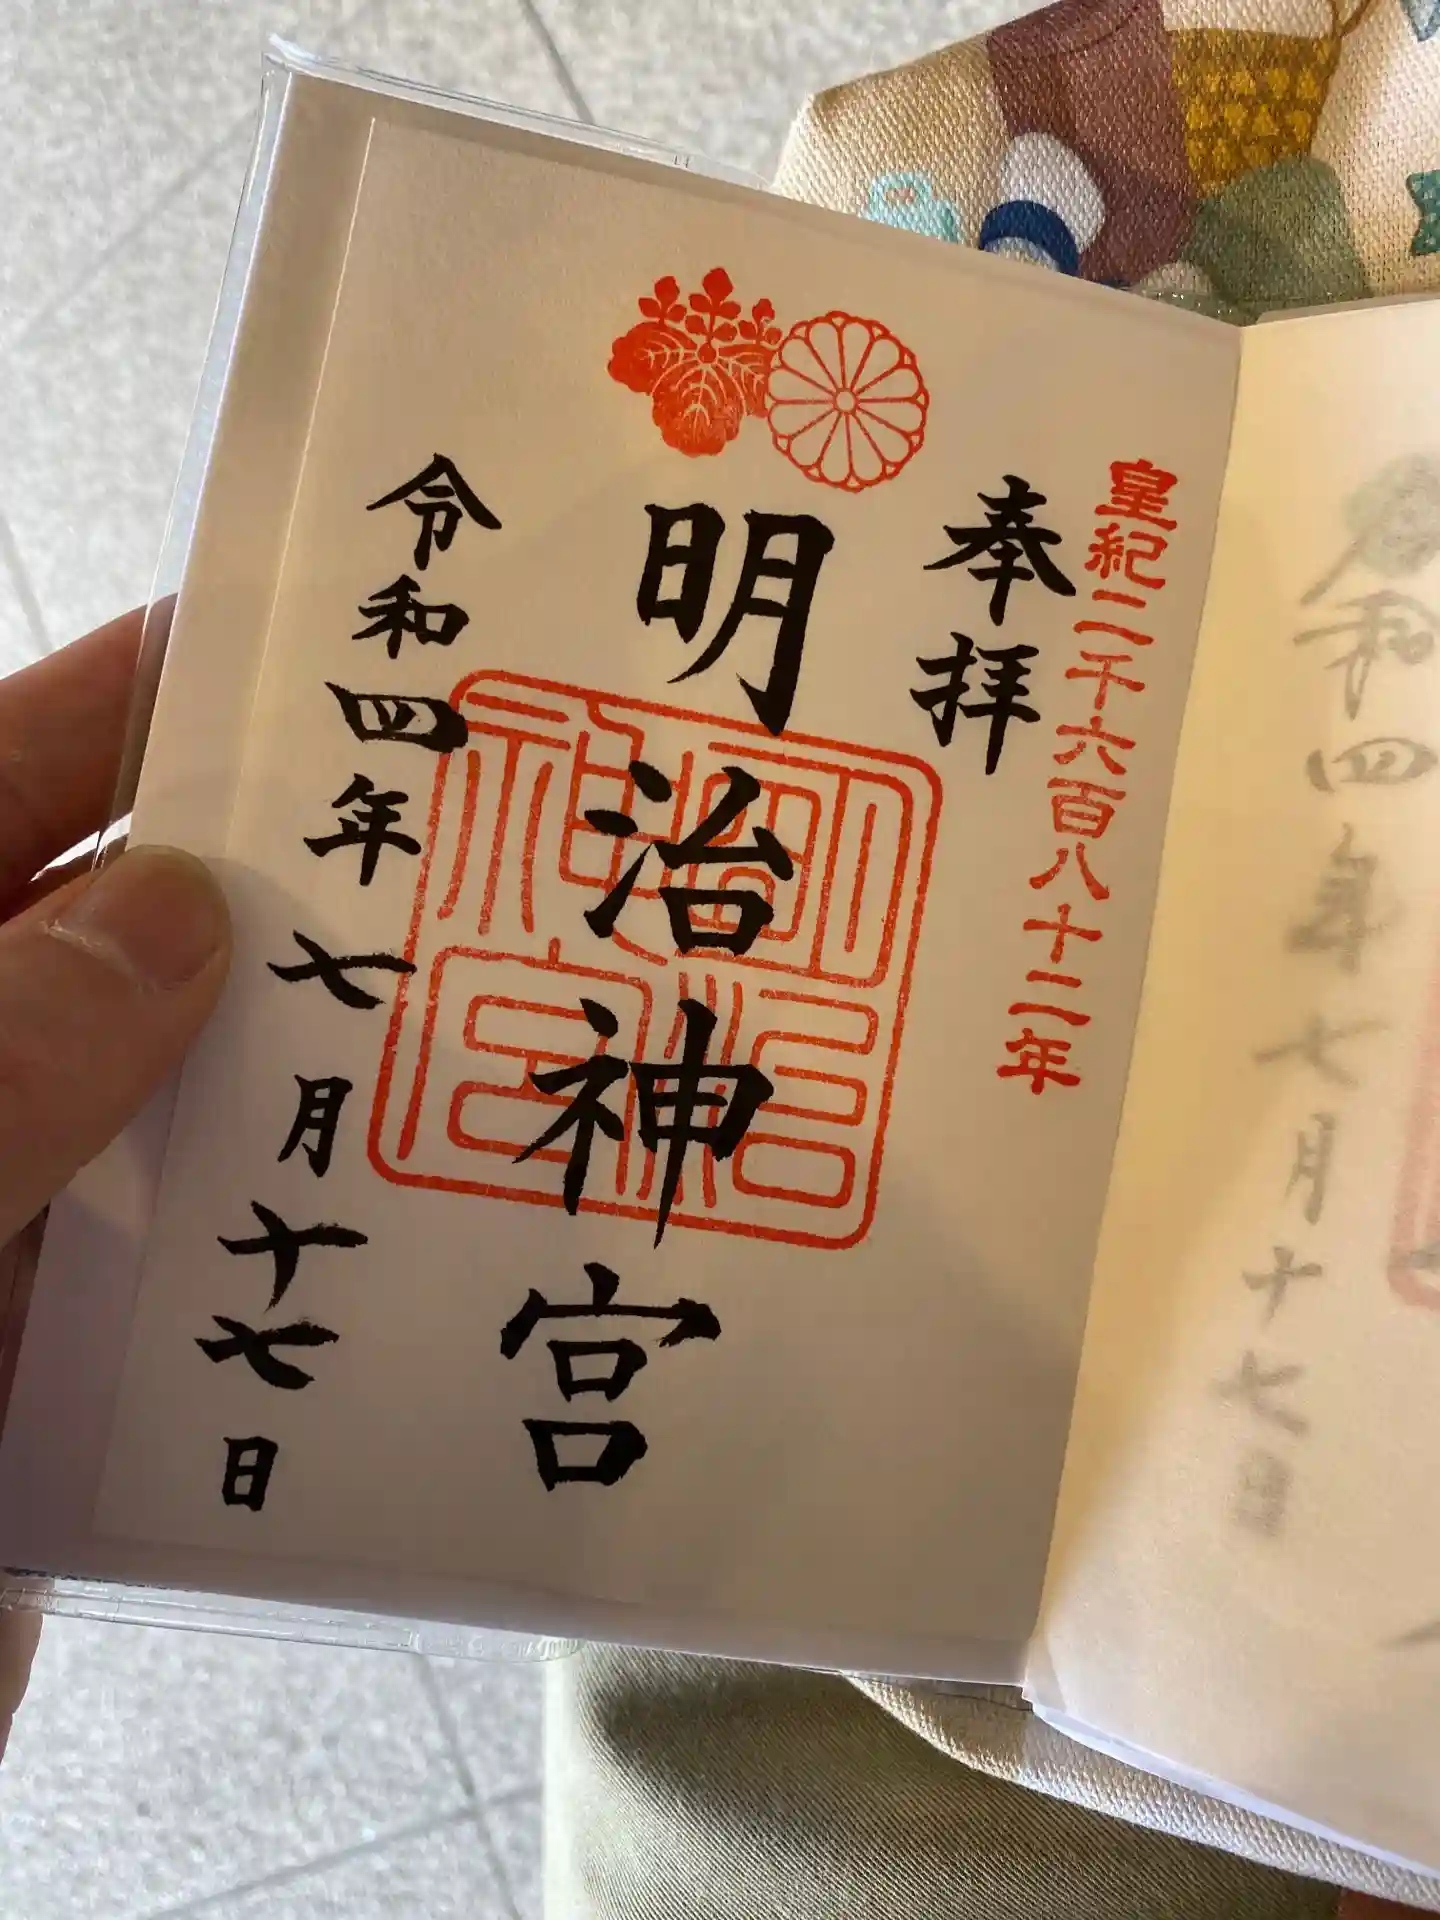 皇紀二千六百八十二年
奉拝
明治神宮
明治神宮
令和四年七月十七日
令和四年七月十七日